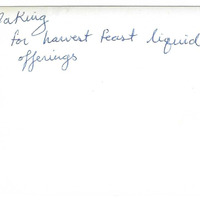 Making
for harvest feast liquid
offerings